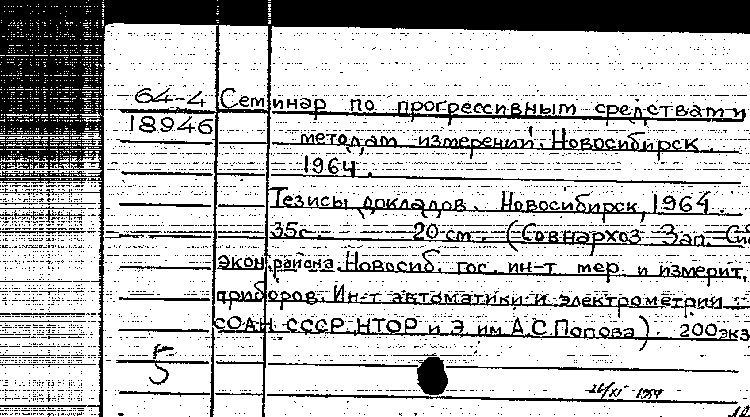 64-4 Семинар по прогрессивным средствам и
18946 методам измерений. Новосибирск.
1964.
Тезисы докладов. Новосибирск, 1964.
35с. 20 см. (Совнархоз Зап.-Сиб
экон. района. Новосиб. гос. ин-т мер и измерит.
приборов. Ин-т автоматики и электрометрии
СОАН СССР, НТОР и Э им А.С.Попова). 200 экз
5